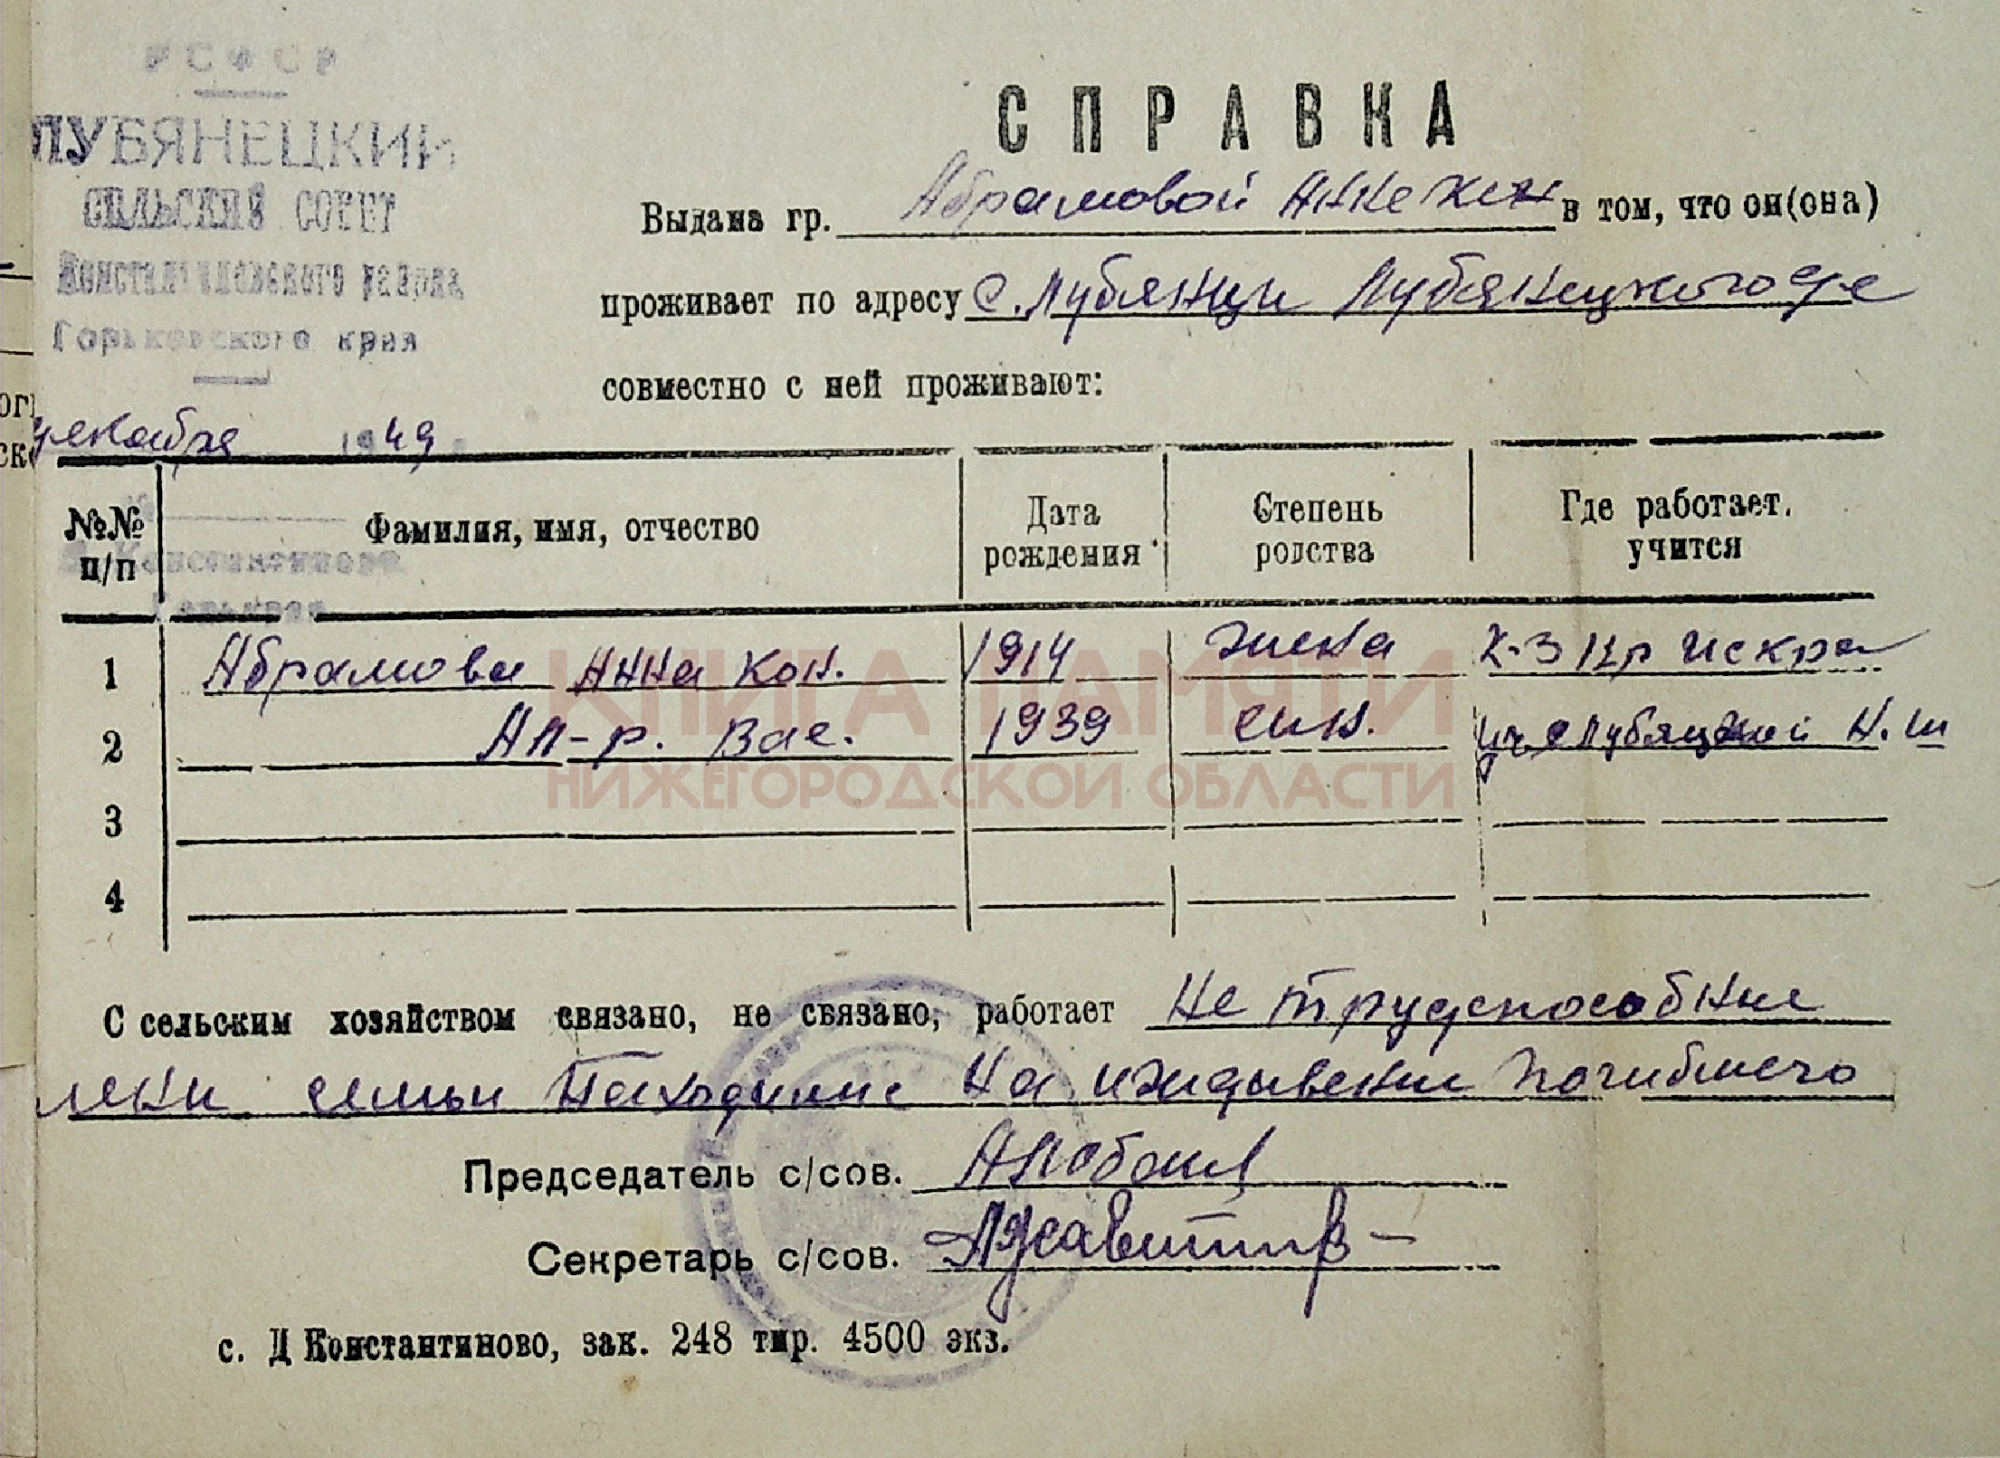 РСФСР
ЛУБЯНЕЦКИЙ
СЕЛЬСКИЙ СОВЕТ
Константиновского района
Горьковского края
декабря 1949
СПРАВКА
Выдана гр. Абрамовой Анне Кон в том, что он(она)
проживает по адресу с. Лубянци Лубянецкого
совместно с ней проживают:
№№ п/п
Фамилия, имя, отчество
Дата рождения
Степень родства
Где работает. учится
Константиново
1 Абрамова Анна Кон. 1914 жена к-з Кр Искра
2 Ал-р. Вас. 1939 сын. Н.Ш
3
4
КНИГА ПАМЯТИ
НИЖЕГОРОДСКОЙ ОБЛАСТИ
С сельским хозяйством связано, не связано, работает не трудспособные
члени семьи находились на иждывении погибшего
Председатель с/сов.
Секретарь с/сов.
с. Д Константиново, зак. 248 тир. 4500 экз.